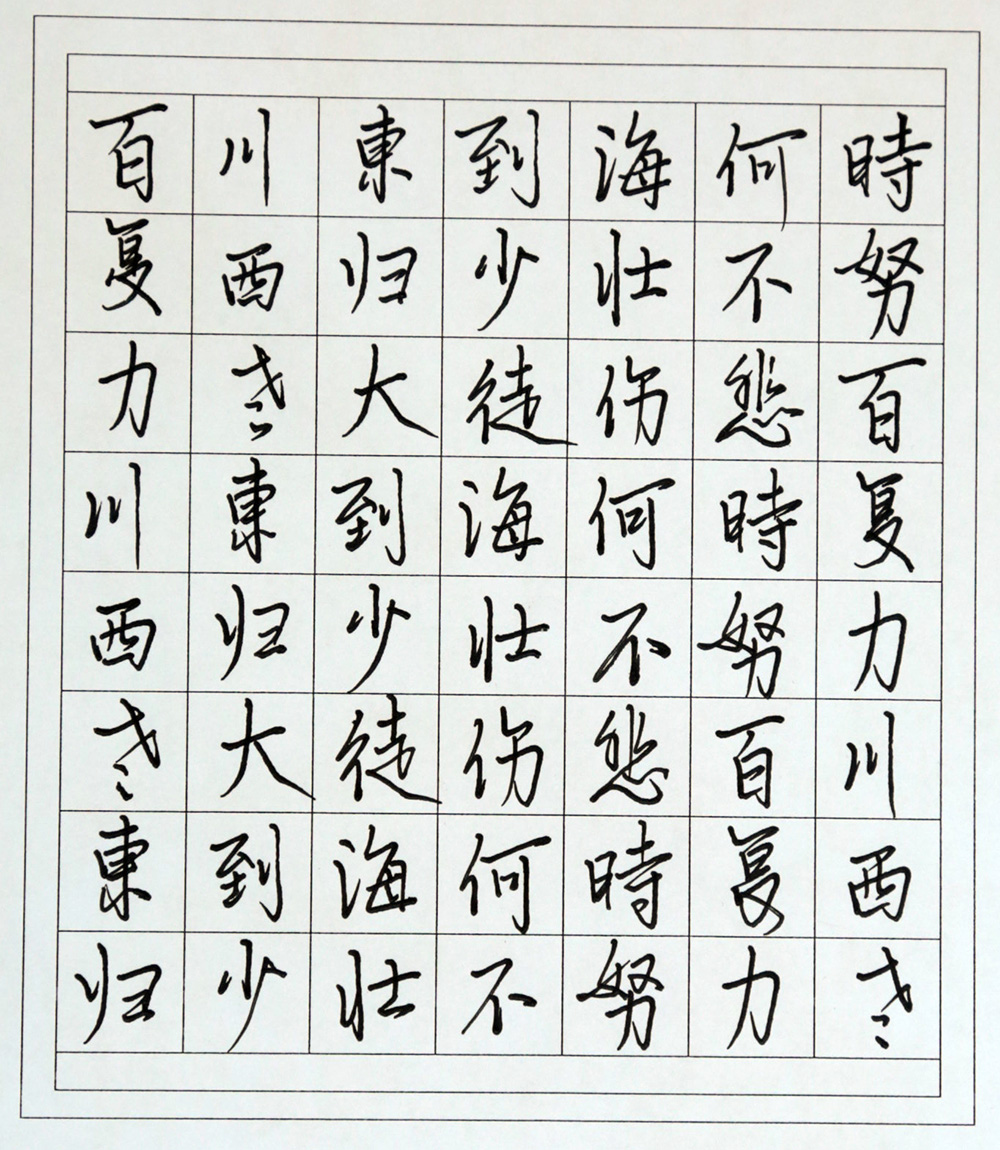 百川東到海何時
复西归少壮不努
力老大徒伤悲百
川東到海何時复
西归少壮不努力
老大徒伤悲百川
東到海何時复西
归少壮不努力老